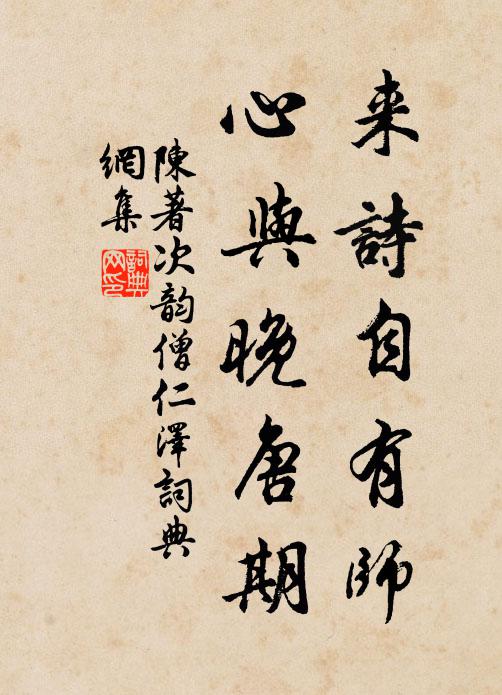 来詩自有師
心與晚唐期
陳著次韵僧仁澤詞典
網集
詞典網印